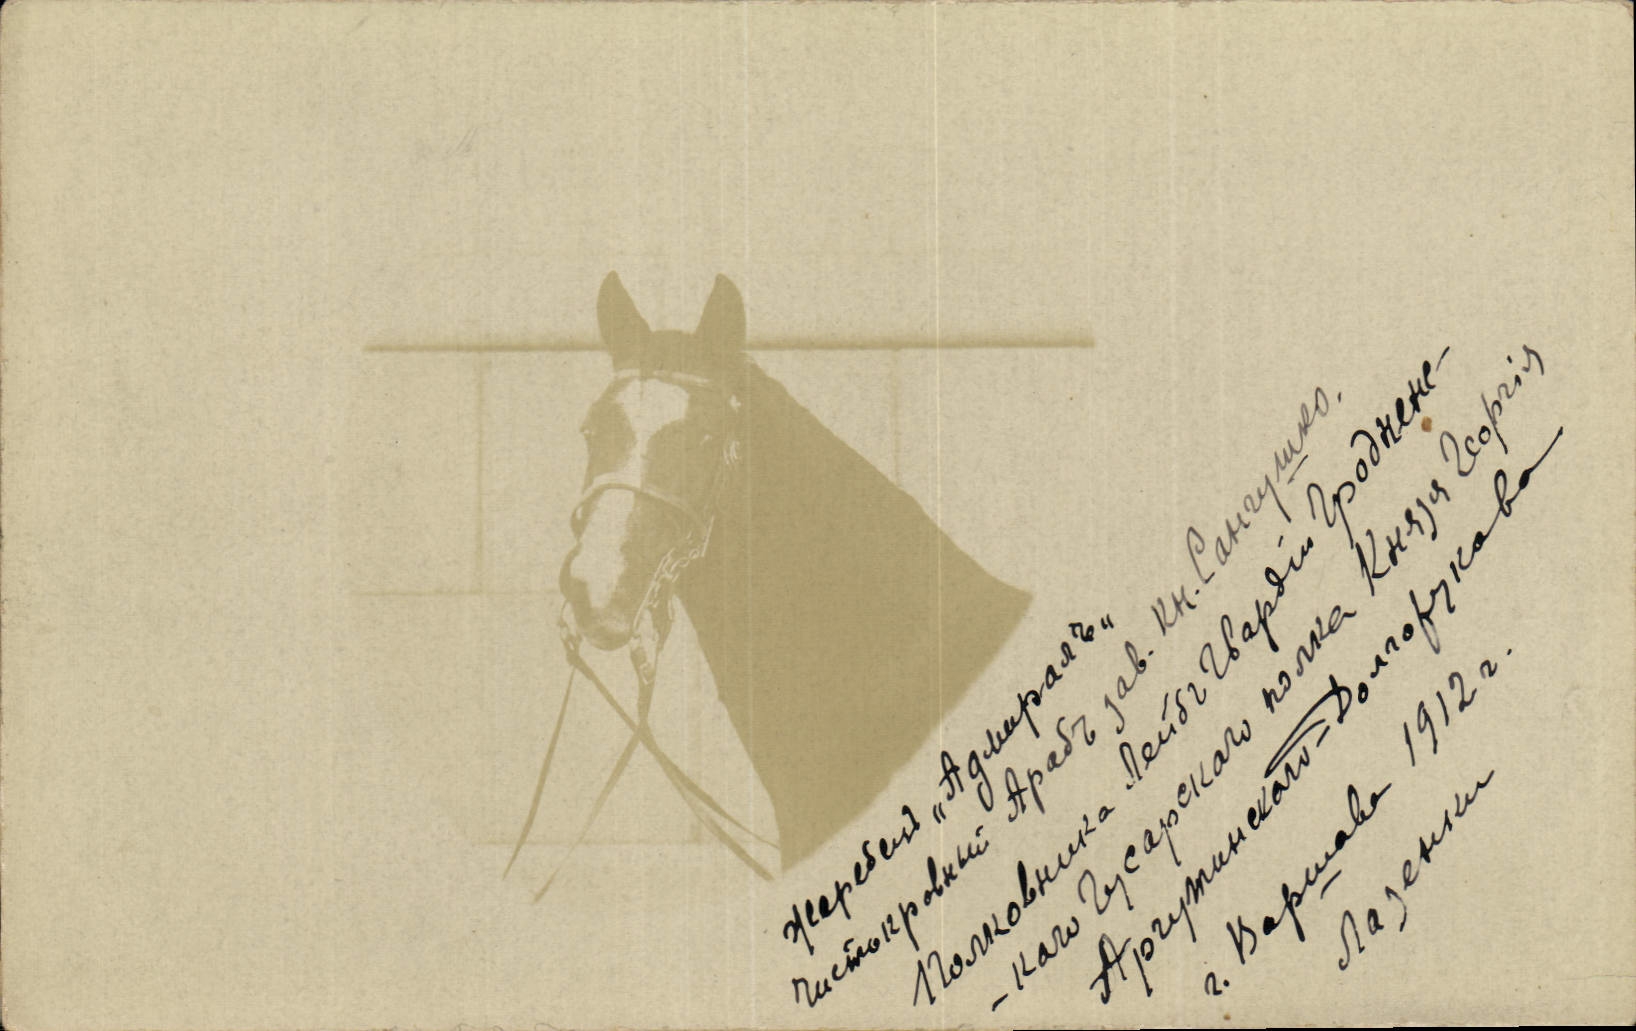 Жеребецъ „Адмиралъ“
Чистокровный Арабъ зав. Кн. Сангушко.
Полковника Лейбъ Гвардіи Гродненс-
-каго Гусарскаго полка Князя Георгія
Аргутинскаго-Долгорукова
г. Варшава 1912 г.
Лазенки